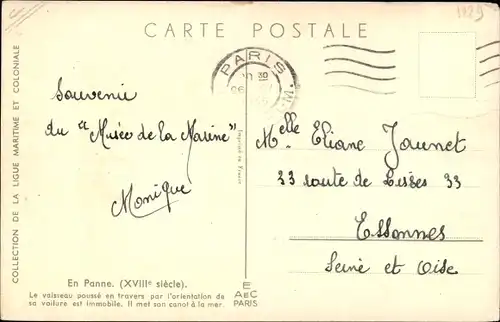 CARTE POSTALE
PARIS
Souvenir
du "Musée de la Marine"
Monique
Melle Eliane Jaunet
33 route de Lisses 33
Essonnes
Seine et Oise
COLLECTION DE LA LIGUE MARITIME ET COLONIALE
Imprimé en France
En Panne. (XVIIIe siècle).
Le vaisseau poussé en travers par l'orientation de
sa voilure est immobile. Il met son canot à la mer.
E
AEC
PARIS